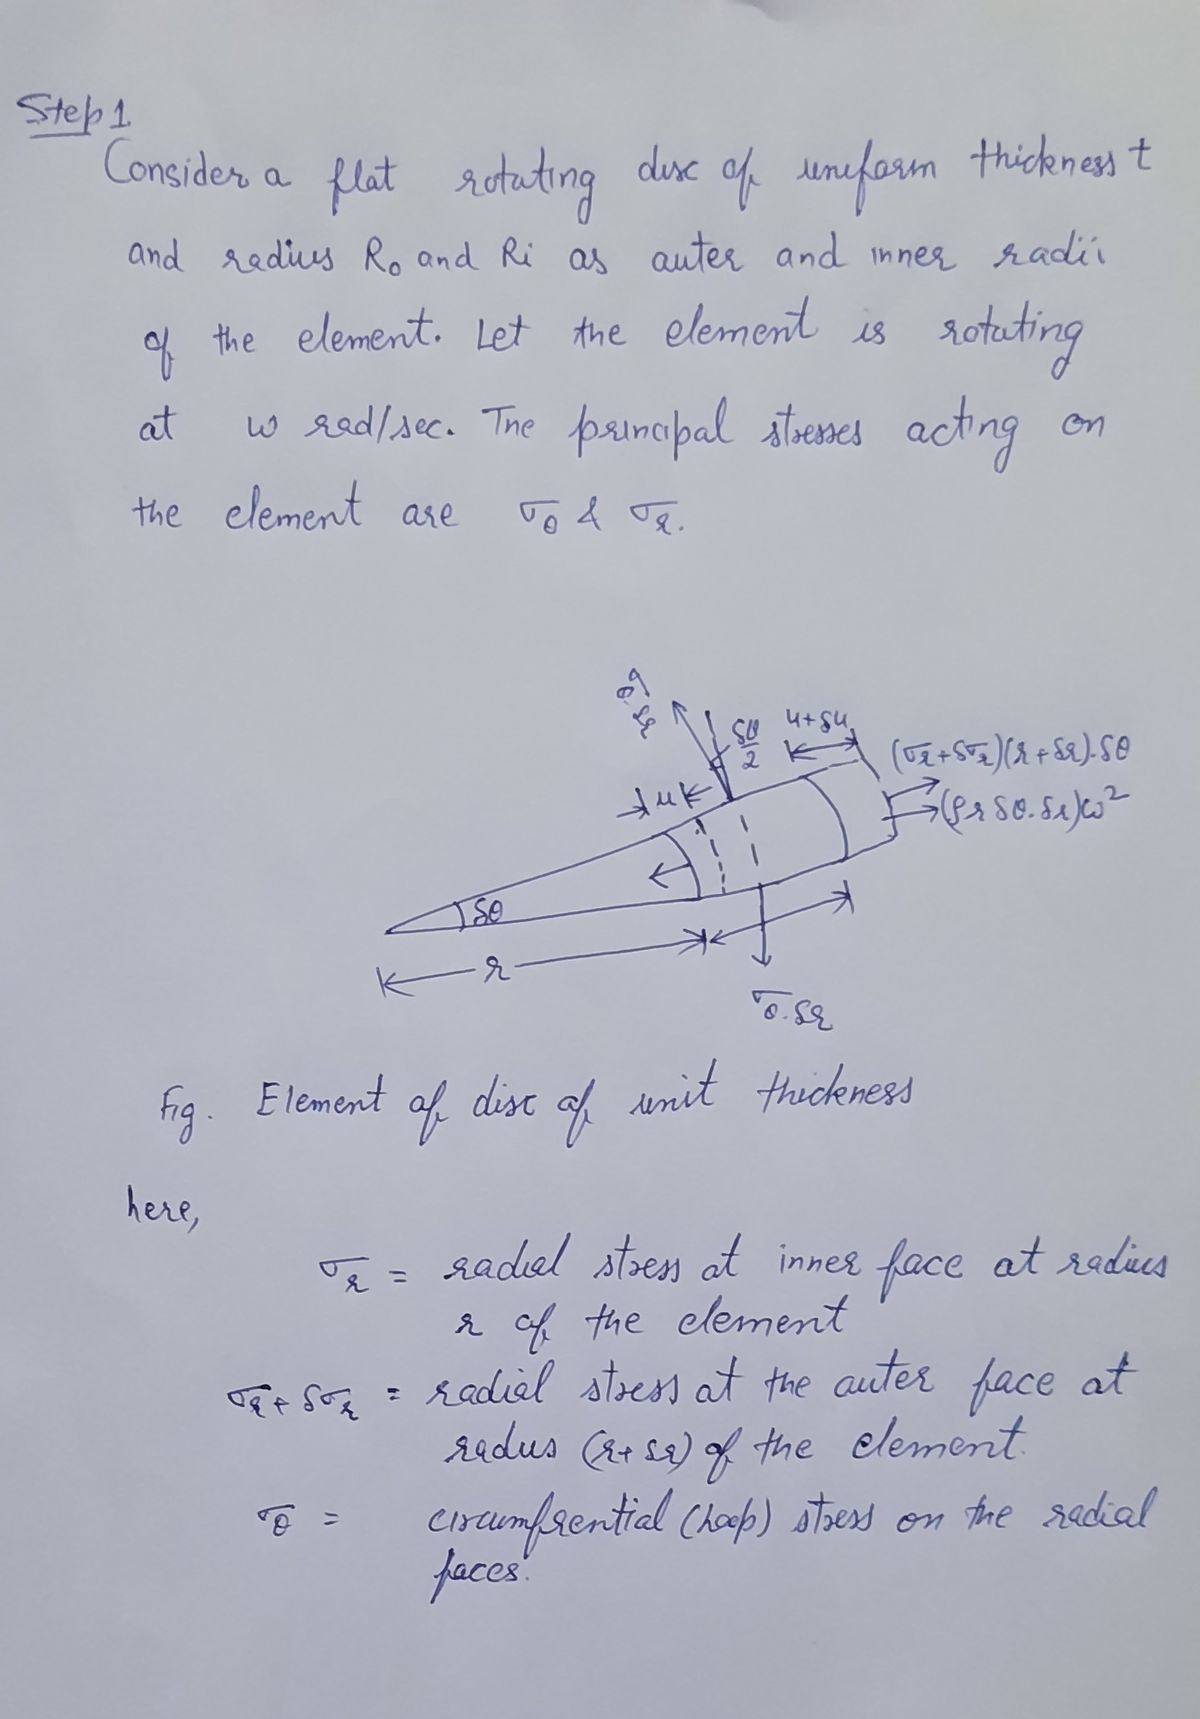 Step 1
Consider a flat rotating disc of uniform thickness t
and radius R₀ and Ri as outer and inner radii
of the element. Let the element is rotating
at ω rad/sec. The principal stresses acting on
the element are σθ & σr.
σθ.δr
δθ/2
u+δu
(σr+δσr)(r+δr).δθ
u
(ρrδθ.δr)ω²
δθ
r
σθ.δr
Fig. Element of disc of unit thickness
here,
σr = radial stress at inner face at radius
r of the element
σr+δσr = radial stress at the outer face at
radius (r+δr) of the element.
σθ = circumfrential (hoop) stress on the radial
faces.